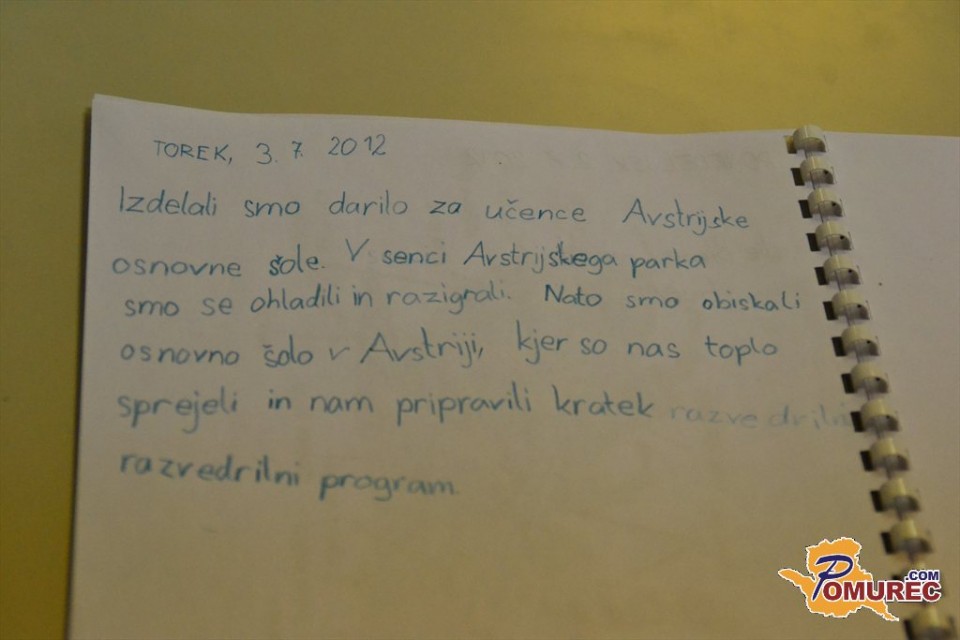 TOREK, 3.7.2012
Izdelali smo darilo za učence Avstrijske
osnovne šole. V senci Avstrijskega parka
smo se ohladili in razigrali. Nato smo obiskali
osnovno šolo v Avstriji, kjer so nas toplo
sprejeli in nam pripravili kratek razvedrilni
razvedrilni program.
POMUREC.COM